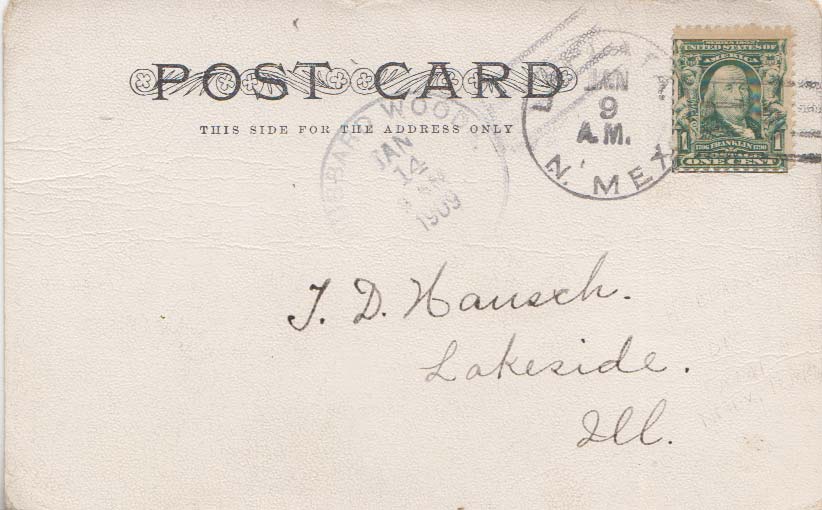 POST CARD
THIS SIDE FOR THE ADDRESS ONLY
JAN
14
1909
JAN
9
A.M.
N. MEX
SERIES 1902
UNITED STATES OF
AMERICA
1 1706 FRANKLIN 1790 1
POSTAGE
ONE CENT
J. D. Hausch.
Lakeside.
Ill.